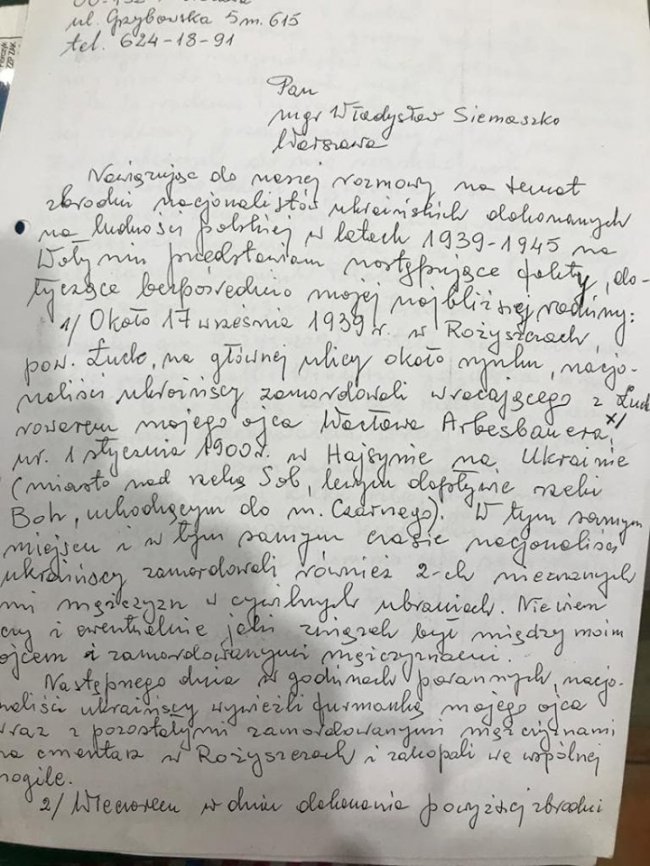 ul. Grzybowska 5 m. 615
tel. 624-18-91
Pan
mgr Władysław Siemaszko
Warszawa
Nawiązując do naszej rozmowy na temat
zbrodni nacjonalistów ukraińskich dokonanych
na ludności polskiej w latach 1939-1945 na
Wołyniu przedstawiam następujące fakty, do-
tyczące bezpośrednio mojej najbliższej rodziny:
1/ Około 17 września 1939 r. w Rożyszczach,
pow. Łuck, na głównej ulicy około rynku, nacjo-
naliści ukraińscy zamordowali wracającego z Łuck
rowerem mojego ojca Wacława Arbesbauera, x/
ur. 1 stycznia 1900 r. w Hajsynie na Ukrainie
(miasto nad rzeką Sob, lewym dopływie rzeki
Boh, uchodzącym do m. Czarnego). W tym samym
miejscu i w tym samym czasie nacjonaliści
ukraińscy zamordowali również 2-ch nieznanych
mi mężczyzn w cywilnych ubraniach. Nie wiem
czy i ewentualnie jaki związek był między moim
ojcem i zamordowanymi mężczyznami.
Następnego dnia w godzinach porannych, nacjo-
naliści ukraińscy wywieźli furmanką mojego ojca
wraz z pozostałymi zamordowanymi mężczyznami
na cmentarz w Rożyszczach i zakopali we wspólnej
mogile.
2/ Wieczorem w dniu dokonania powyższej zbrodni